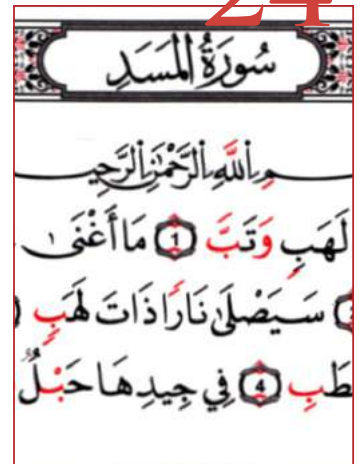 24
سُورَةُ المَسَدِ
ـمِ اللَّهِ الرَّحْمَٰنِ الرَّحِيـ
لَهَبٍ وَتَبَّ 1 مَا أَغْنَىٰ
سَيَصْلَىٰ نَارًا ذَاتَ لَهَبٍ
ـطَبِ 4 فِي جِيدِهَا حَبْلٌ